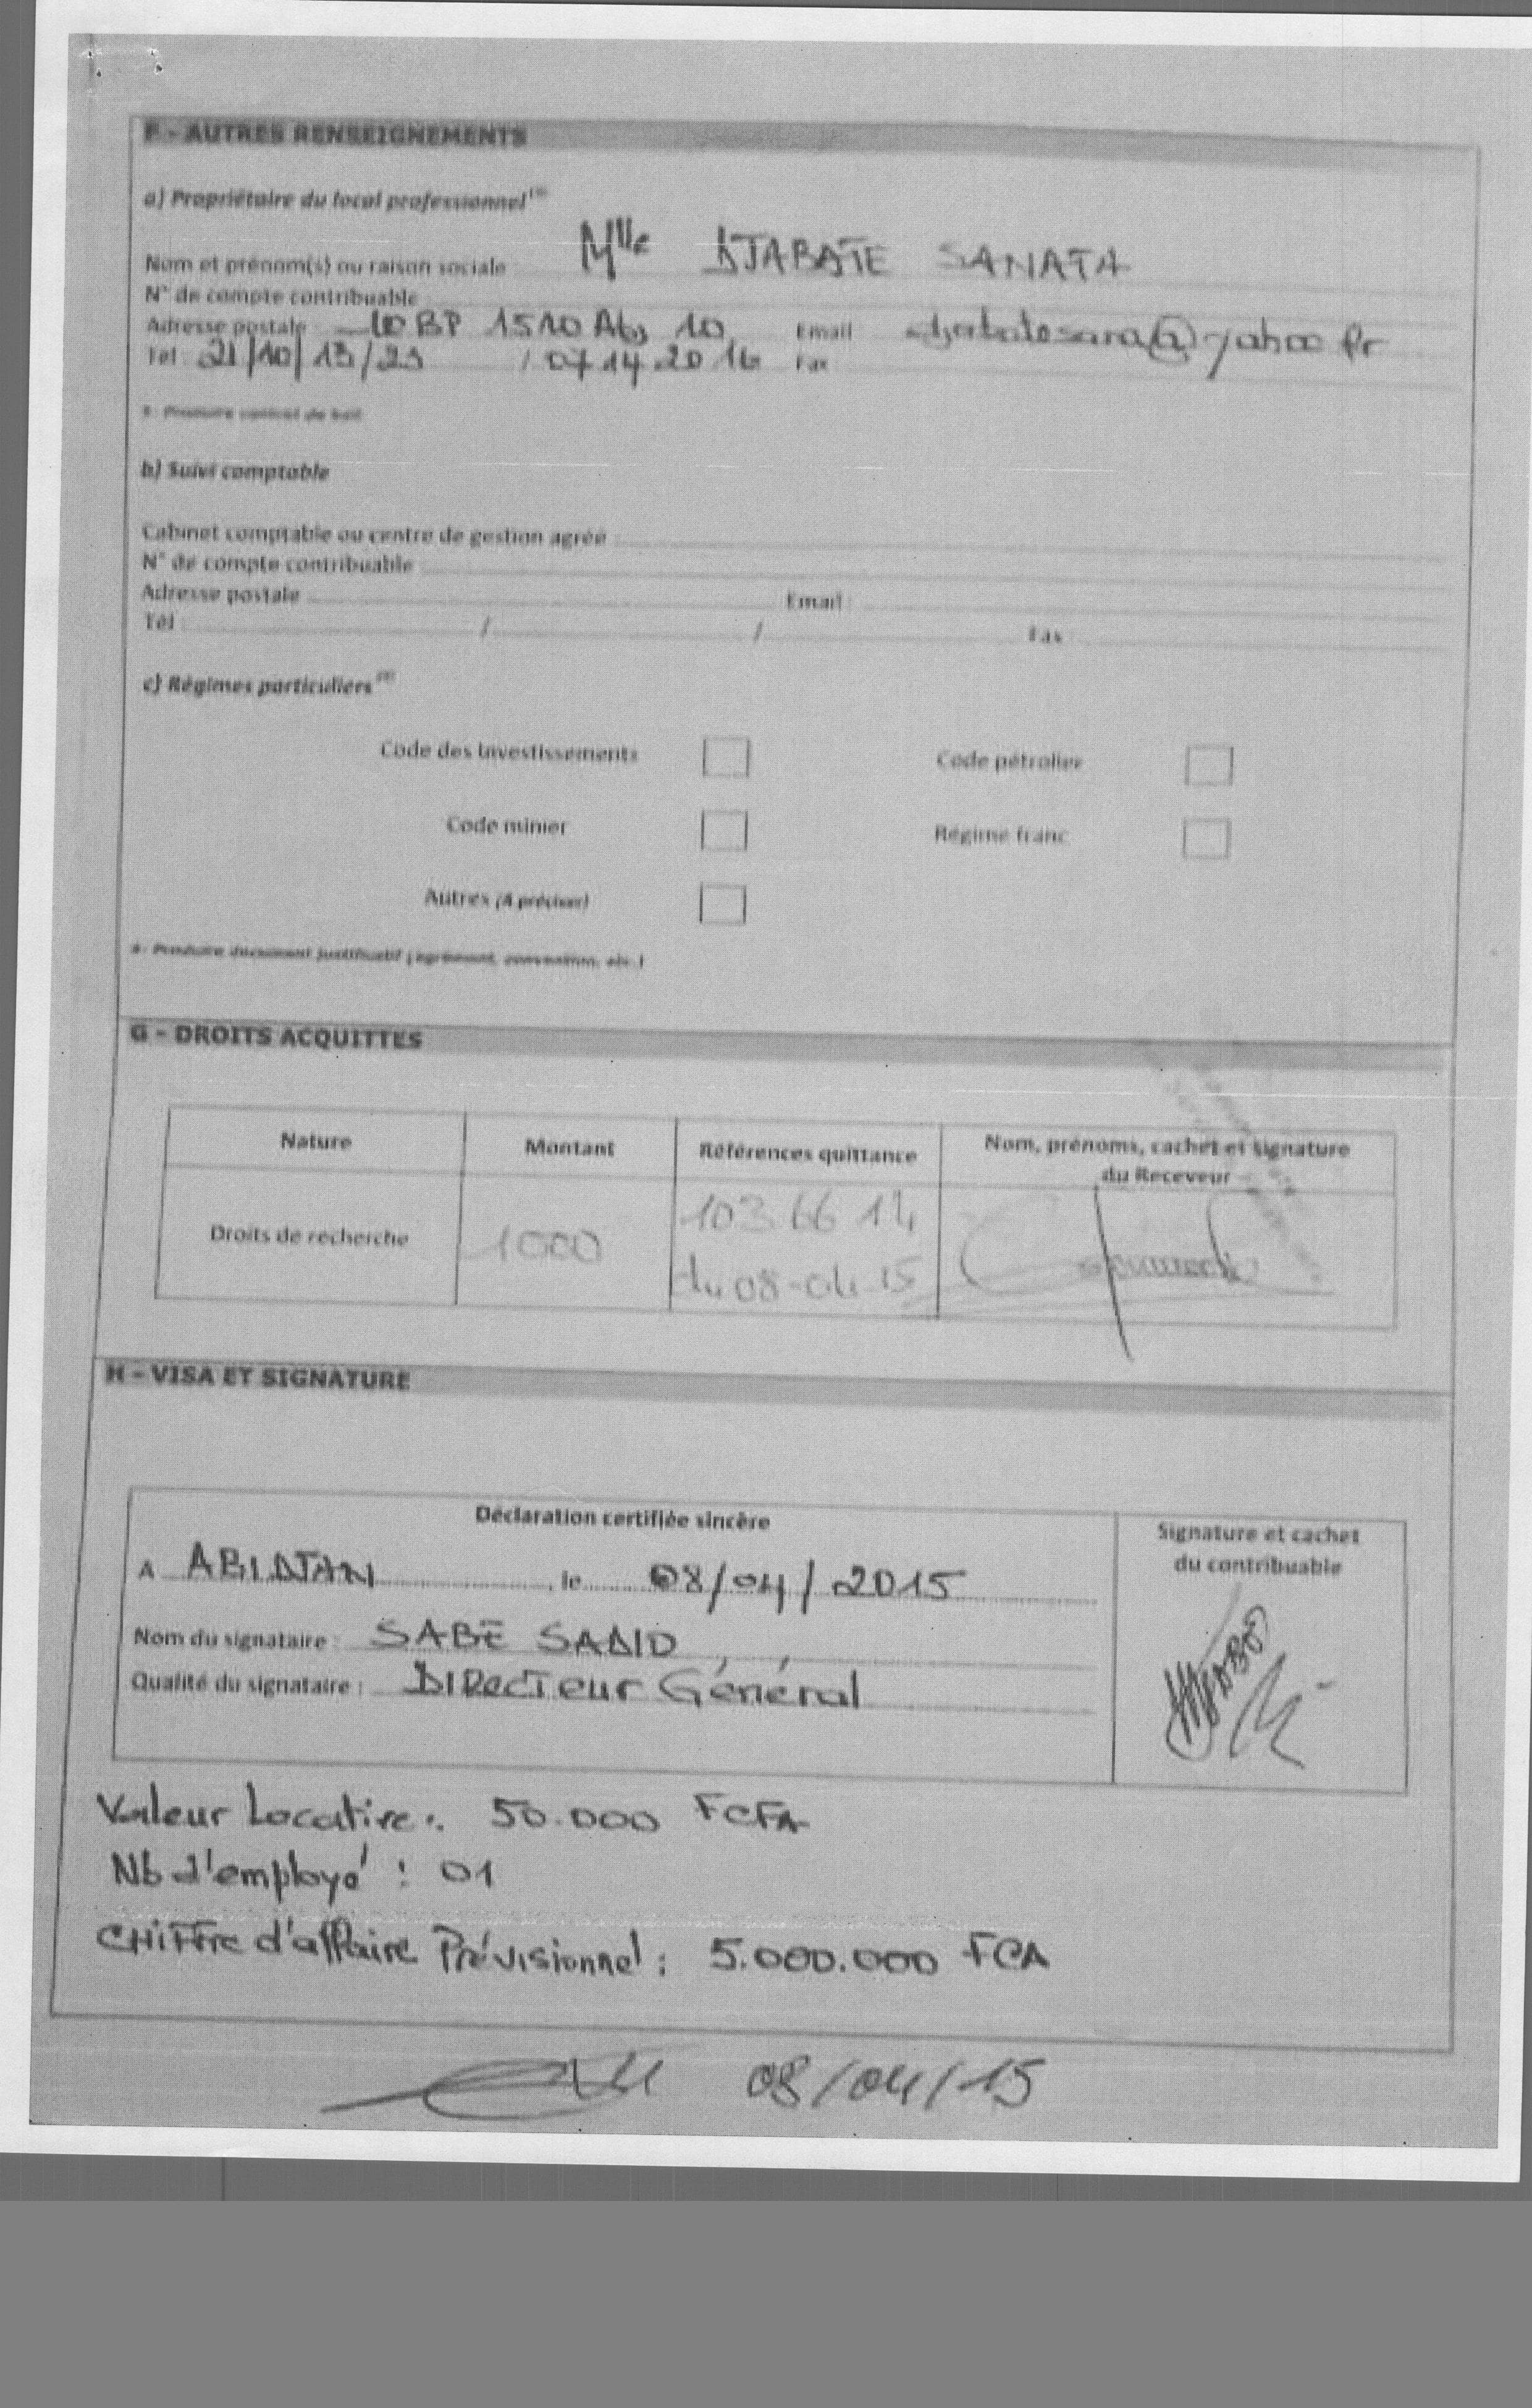 F - AUTRES RENSEIGNEMENTS
a) Propriétaire du local professionnel
Nom et prénom(s) ou raison sociale : Mlle DJABATE SANATA
N° de compte contribuable
Adresse postale : 10 BP 1510 Abj 10 Email djabatesana@yahoo.fr
Tél : 21/10/13/23 / 07 14 20 16 Fax
3 : Produire contrat de bail
b) Suivi comptable
Cabinet comptable ou centre de gestion agréé :
N° de compte contribuable :
Adresse postale Email :
Tél : / / Fax
c) Régimes particuliers (4)
Code des Investissements Code pétrolier
Code minier Régime franc
Autres (A préciser)
4 : Produire document justificatif (agrément, convention, etc.)
G - DROITS ACQUITTES
Nature Montant Références quittance Nom, prénoms, cachet et signature
du Receveur
Droits de recherche 1000 103 66 14
du 08-04-15
H - VISA ET SIGNATURE
Déclaration certifiée sincère Signature et cachet
du contribuable
A ABIDJAN, le 08/04/2015
Nom du signataire : SABE SADIO
Qualité du signataire : DIRecTeur Général
Valeur Locative : 50.000 FCFA
Nb d'employé : 01
CHiFFre d'affaire Prévisionnel : 5.000.000 FCA
08/04/15